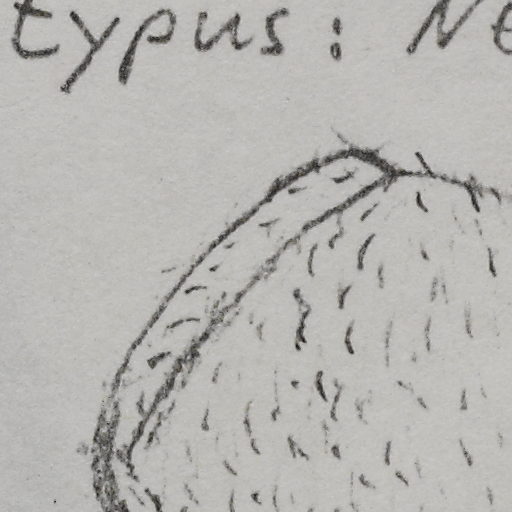 typus: Ne